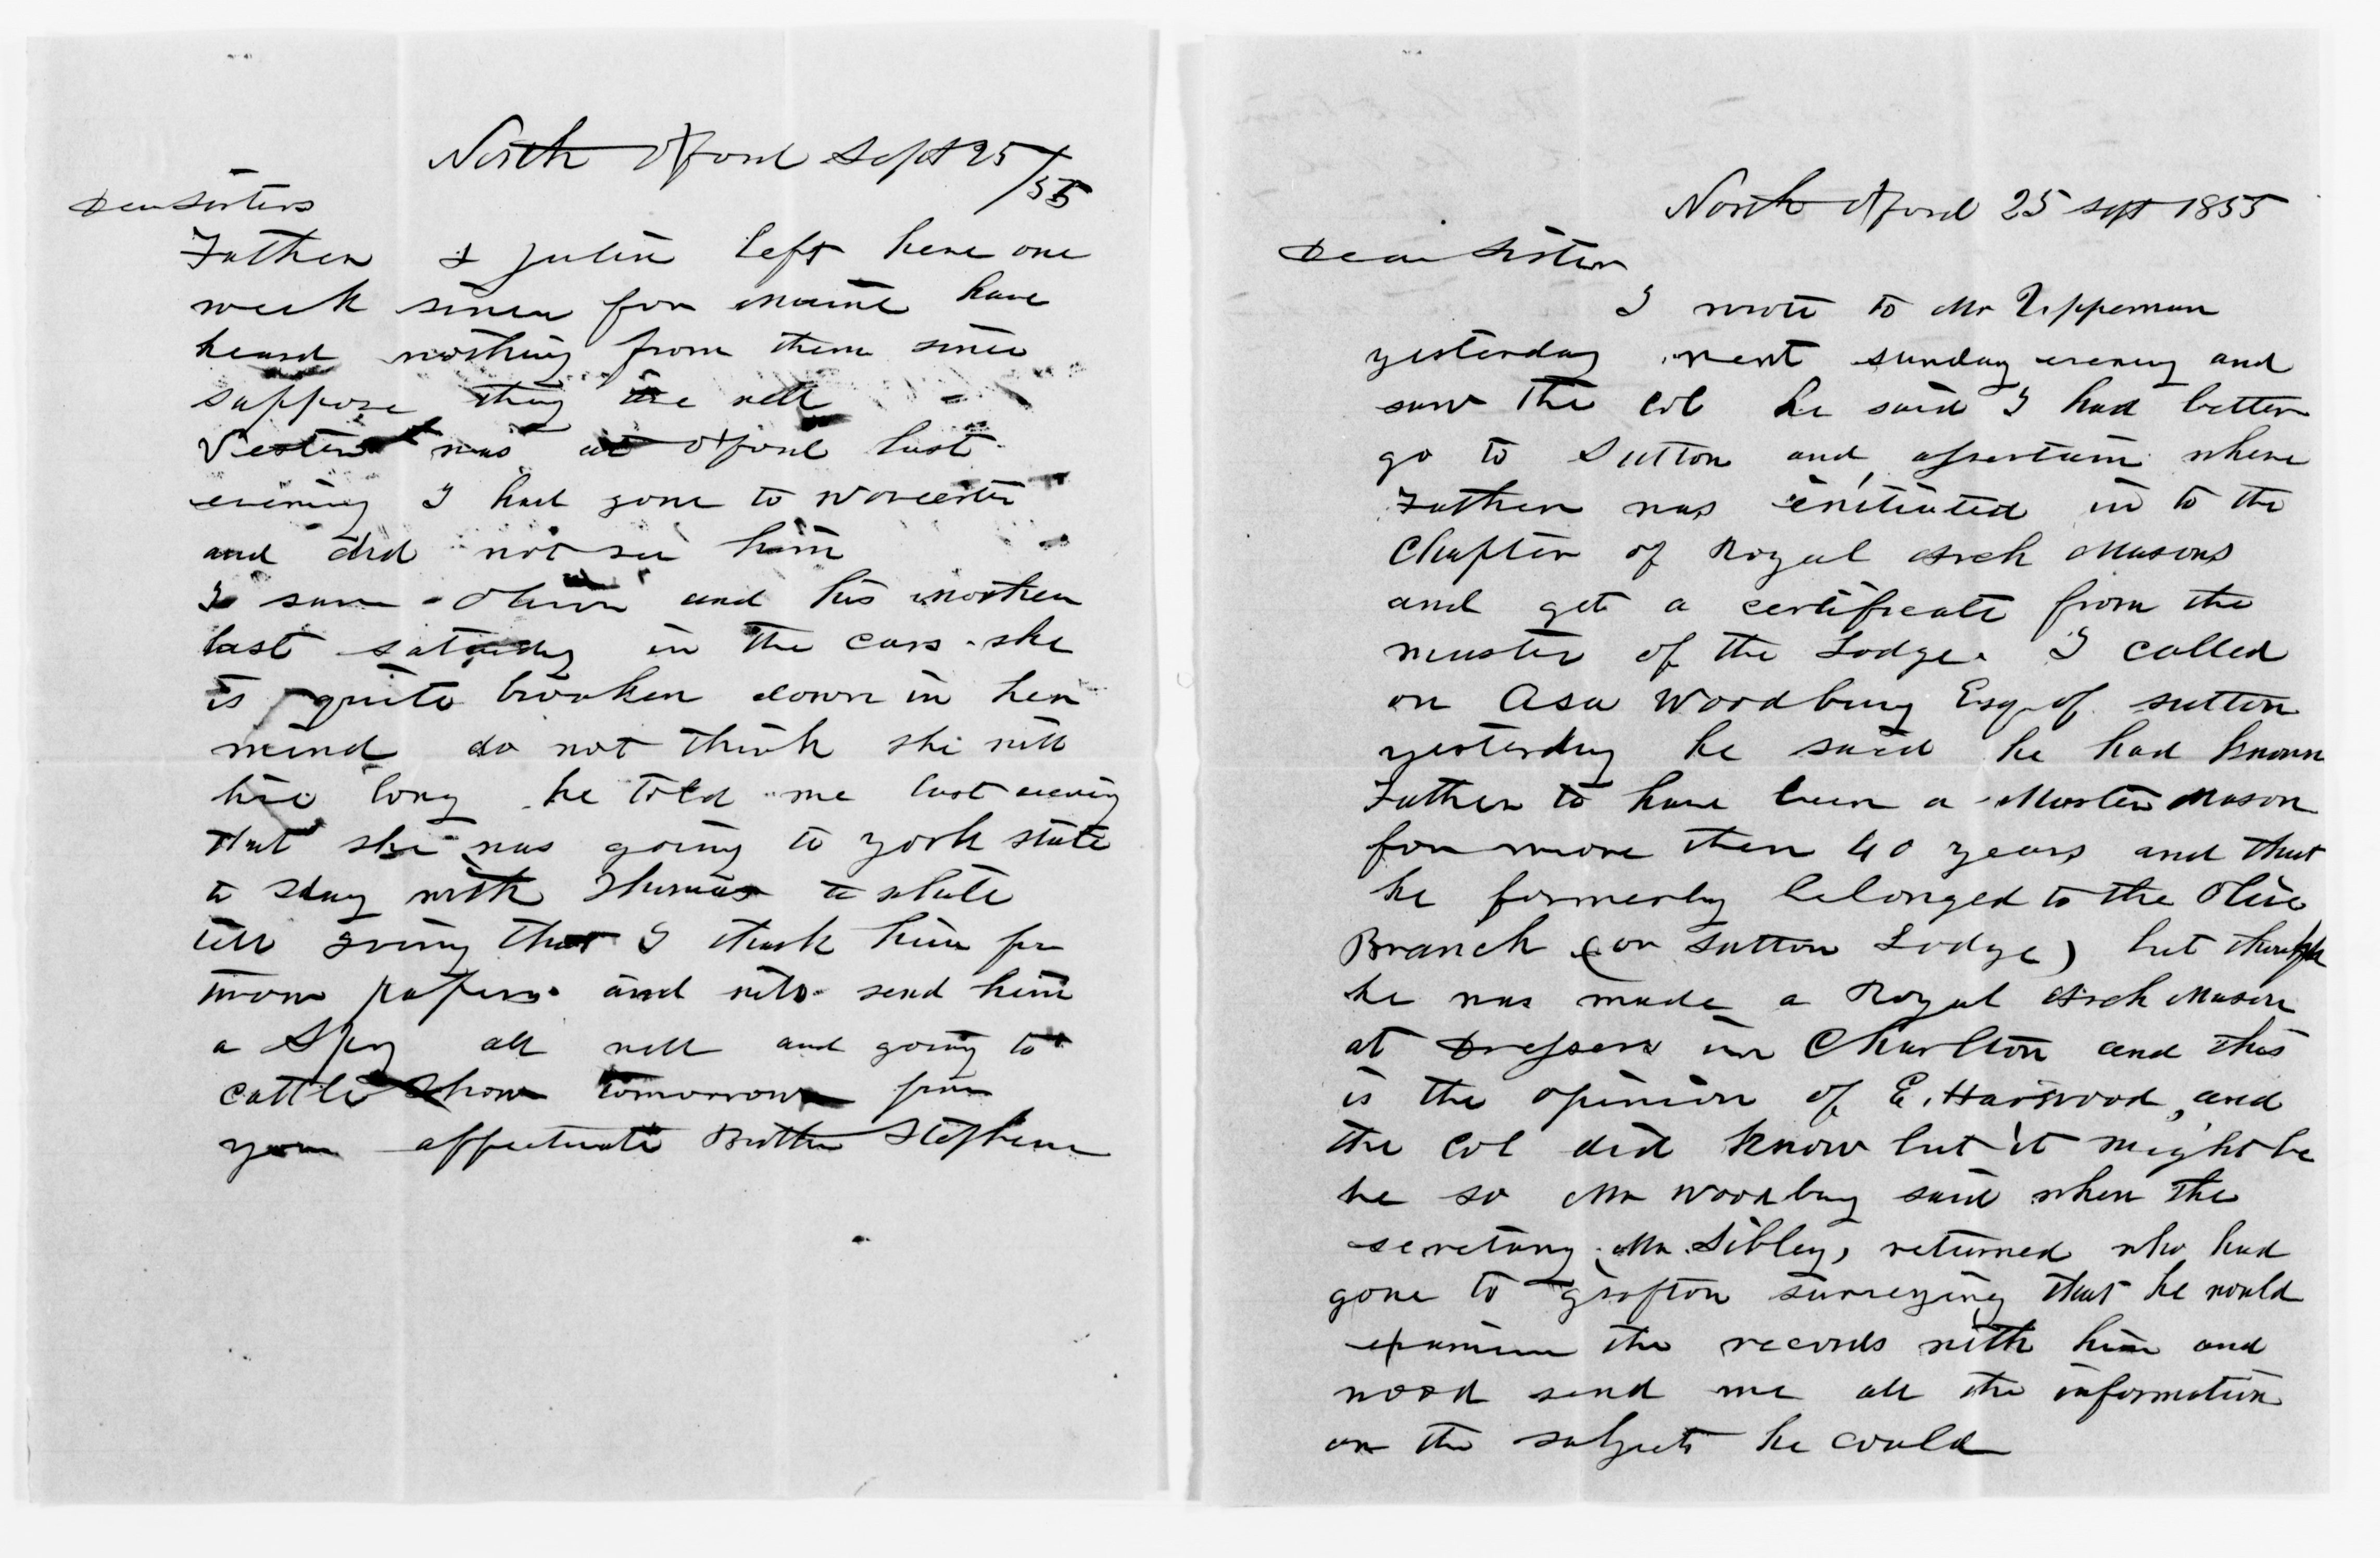 North Oxford Sept 25
/55
Dear Sisters
Father & Julia left here one
week since for maine have
heard nothing from them since
suppose they are well
Vester was at Oxford last
evening I had gone to Worcester
and did not see him
I saw Oliver and his mother
last saturday in the cars - she
is quite broken down in her
mind do not think she will
live long he told me last evening
that she was going to york state
to stay with Thomas
till spring that I thank him for
papers and will send him
a Spy all well and going to
cattle show tomorrow from
your affectionate Brother Stephen
North Oxford 25 sept 1855
Dear Sister
I wrote to Mr
yesterday went sunday evening and
saw the Col he said I had better
go to Sutton and assertain where
Father was enitiated in to the
Chapter of Royal Arch Masons
and get a certificate from the
master of the Lodge. I called
on Asa Woodbury Esq of sutton
yesterday he said he had known
Father to have been a Master Mason
for more then 40 years and that
he formerly belonged to the Olive
Branch (or Sutton Lodge) but
he was made a Royal Arch Mason
at Dressers in Charlton and this
is the opinion of E. Harwood, and
the Col did know but it might be
be so Mr Woodbury said when the
secretary Mr. Sibley, returned who had
gone to grafton surveying that he would
examine the records with him and
wood send me all the information
on the subject he could